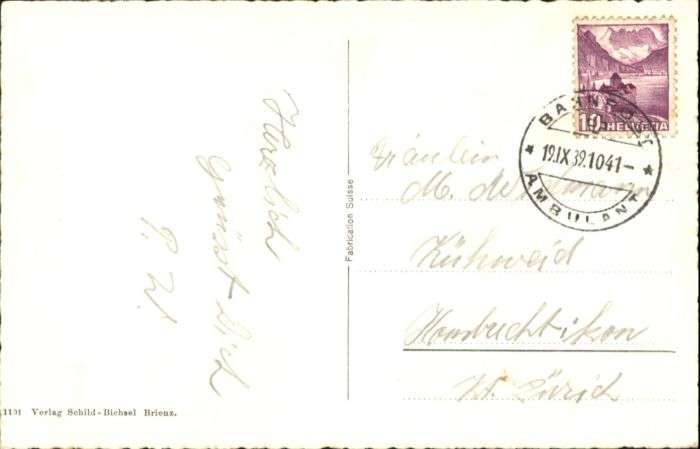 Herzlich
Grüsst Dich
P. W.
1101 Verlag Schild-Bichsel Brienz.
Fabrication Suisse
10 HELVETIA
BAHNPOST
19.IX.39.1041-
AMBULANT
Fräulein
M.
Kühweid
Hombrechtikon
Kt. Zürich